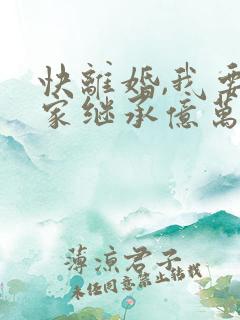 快離婚,我要
家继承億萬
薄涼君子
未任同意禁止转载